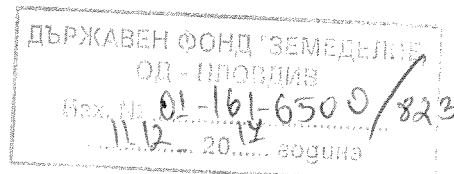 ДЪРЖАВЕН ФОНД "ЗЕМЕДЕЛИЕ
ОД - ПЛОВДИВ
Вх. № 01-161-6500/823
11.12 2017 година